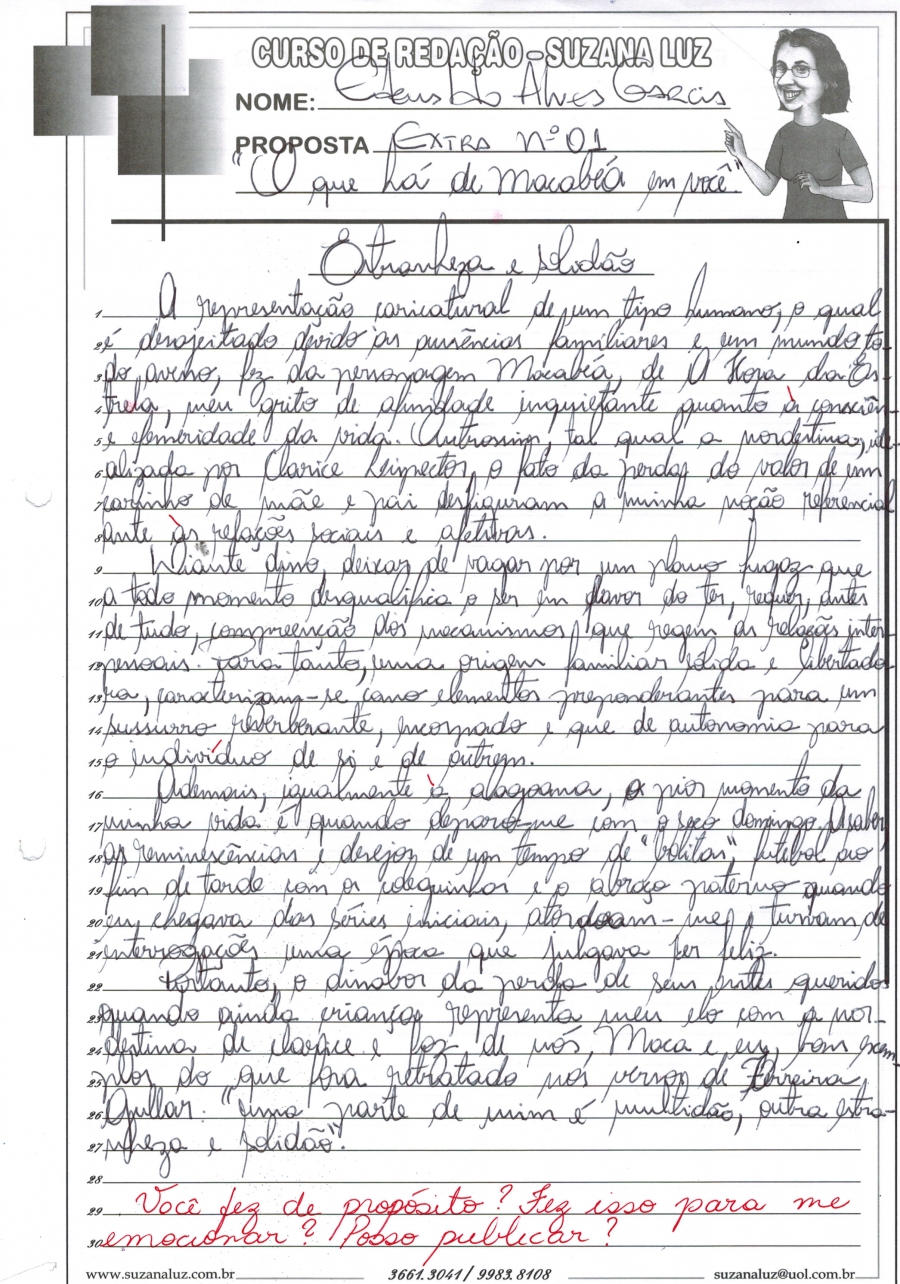 CURSO DE REDAÇÃO - SUZANA LUZ
NOME: Alves Garcia
PROPOSTA Extra nº 01
"O que há de Macabéa em você"
Estranheza e solidão
1 A representação caricatural de um tipo humano, o qual
2 é desajeitado devido às ausências familiares e um mundo to
3 do avesso, fez da personagem Macabéa, de A Hora da Es
4 trela, meu grito de afinidade inquietante quanto à consciên
5 e efemeridade da vida. Outrossim, tal qual a nordestina, ide
6 alizada por Clarice Lispector, o fato da perda do valor de um
7 carinho de mãe e pai desfiguram a minha noção referencial
8 ante às relações sociais e afetivas.
9 Diante disso, deixar de vagar por um plano fugaz que
10 a todo momento desqualifica o ser em favor do ter, requer, antes
11 de tudo, compreenção dos mecanismos que regem as relações inter
12 pessoais. Para tanto, uma origem familiar sólida e libertado
13 ra, caracterizam-se como elementos preponderantes para um
14 sussurro reverberante, encorpado e que de autonomia para
15 o indivíduo de si e de outrem.
16 Ademais, igualmente à alagoana, o pior momento da
17 minha vida é quando deparo-me com o seco domingo. A saber,
18 as reminescências e desejos de um tempo de "bolitas", futebol ao
19 fim de tarde com os coleguinhas e o abraço paterno quando
20 eu chegava das séries iniciais, atordoam-me e turvam de
21 interrogações uma época que julgava ser feliz.
22 Portanto, o dissabor da perda de seus entes queridos
23 quando ainda criança, representa meu elo com a nor-
24 destina de clarice e faz de nós, Maca e eu, bons exem
25 plos do que fora retratado nos versos de Ferreira
26 Gullar: "uma parte de mim é multidão, outra estra-
27 nheza e solidão".
28
29 Você fez de propósito? Fez isso para me
30 emocionar? Posso publicar?
www.suzanaluz.com.br 3661.3041 / 9983.8108 suzanaluz@uol.com.br